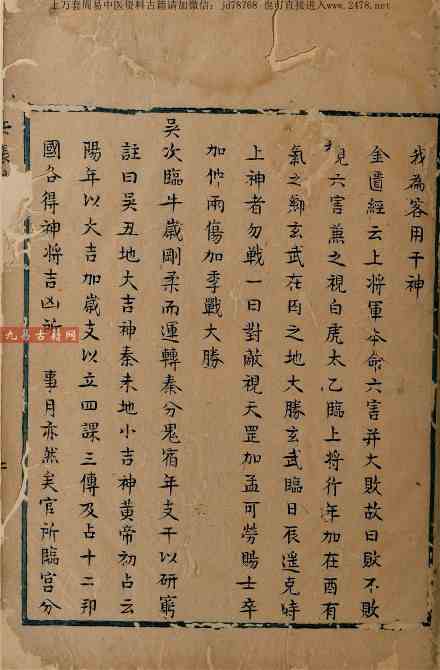 上万套周易中医资料古籍请加微信：jd78768 也可直接进入www.2478.net
我為客用干神
金匱經云上將軍本命六害并大敗故曰敗不敗
視六害兼之視白虎太乙臨上將行年加在酉有
氣之鄉玄武在囚之地大勝玄武臨日辰遥克時
上神者勿戰一曰對敵視天罡加孟可勞賜士卒
加仲兩傷加季戰大勝
吴次臨牛嵗剛柔而運轉秦分鬼宿年支干以研窮
註曰吴丑地大吉神秦未地小吉神黄帝初占云
陽年以大吉加嵗支以立四課三傳及占十二
國各得神將吉凶所 事月亦然矣官所臨宫分
九易古籍网